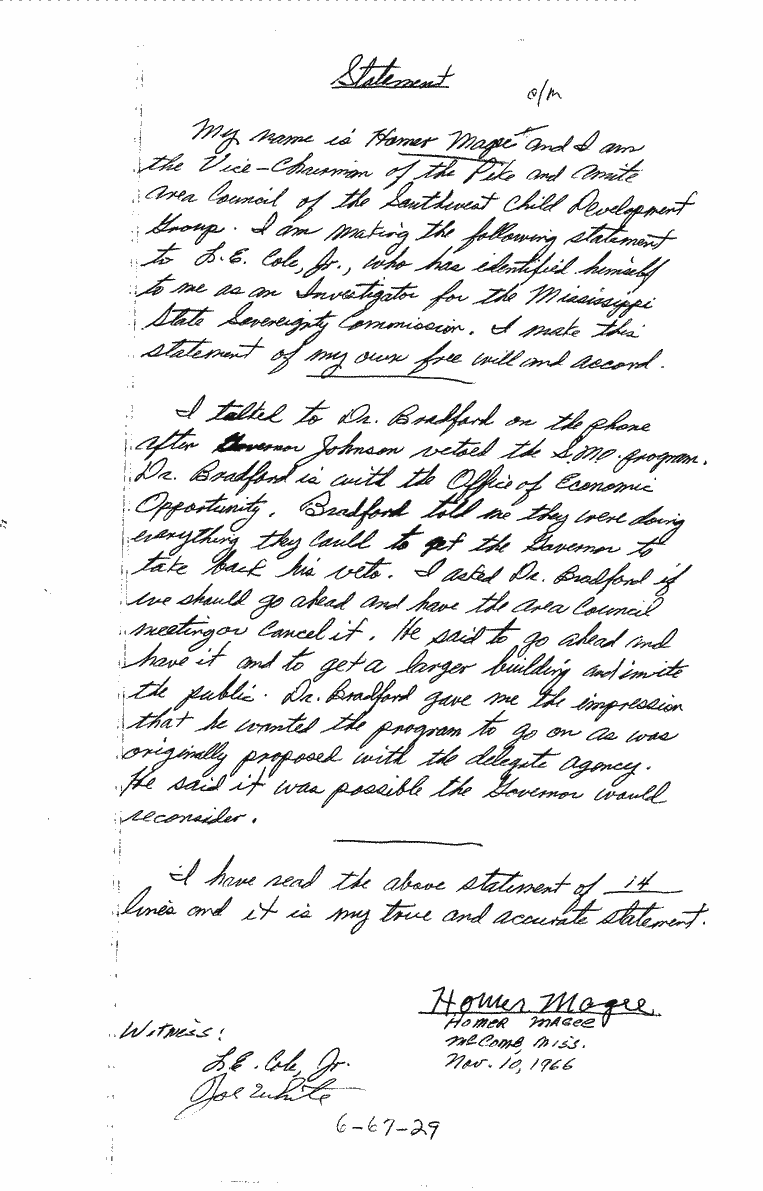 Statement
o/m
My name is Homer Magee and I am
the Vice-Chairman of the Pike and Amite
Area Council of the Southwest Child Development
Group. I am making the following statement
to L.E. Cole, Jr., who has identified himself
to me as an Investigator for the Mississippi
State Sovereignty Commission. I make this
statement of my own free will and accord.
I talked to Dr. Bradford on the phone
after Governor Johnson vetoed the S.M.P. program.
Dr. Bradford is with the Office of Economic
Opportunity. Bradford told me they were doing
everything they could to get the Governor to
take back his veto. I asked Dr. Bradford if
we should go ahead and have the area Council
meeting or cancel it. He said to go ahead and
have it and to get a larger building and invite
the public. Dr. Bradford gave me the impression
that he wanted the program to go on as was
originally proposed with the delegate agency.
He said it was possible the Governor would
reconsider.
I have read the above statement of 14
lines and it is my true and accurate statement.
Homer Magee
HOMER MAGEE
McComb, Miss.
Nov. 10, 1966
Witness:
L.E. Cole, Jr.
Joe White
6-67-29